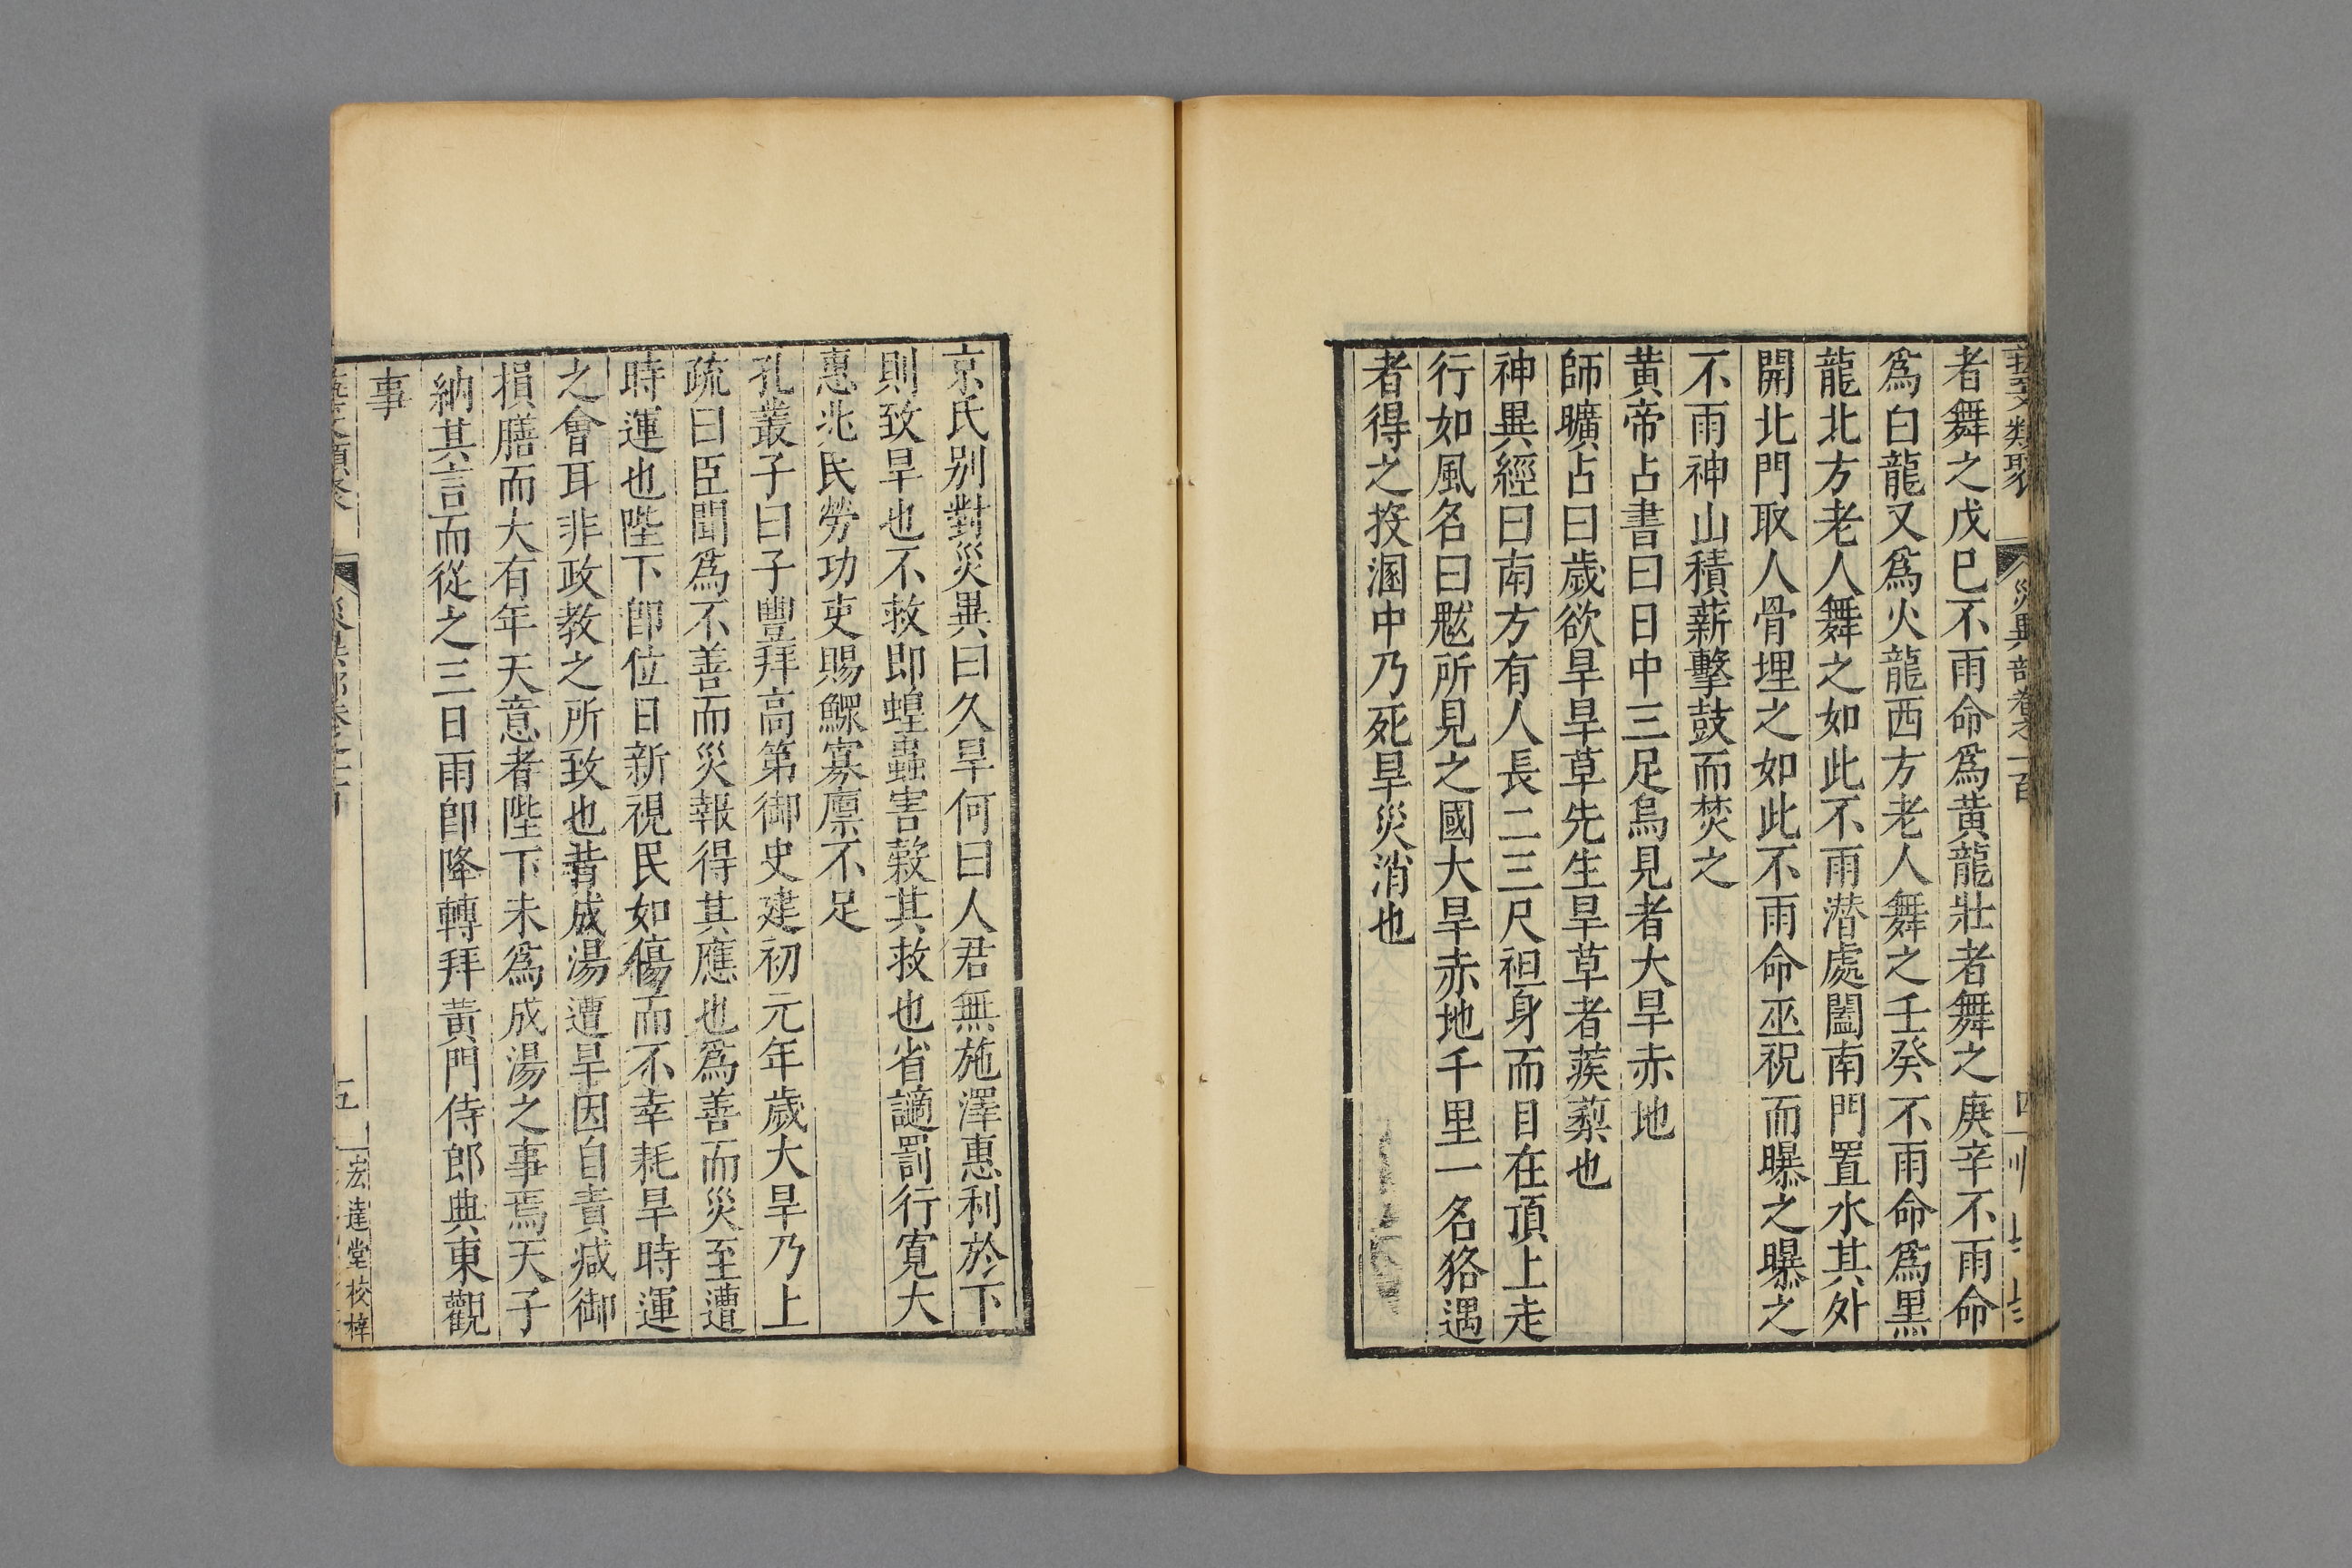 者舞之戊巳不雨命爲黄龍壯者舞之庚辛不雨命
爲白龍又爲火龍西方老人舞之壬癸不雨命爲黒
龍北方老人舞之如此不雨潜處闔南門置水其外
開北門取人骨埋之如此不雨命巫祝而曝之曝之
不雨神山積薪擊鼓而焚之
黄帝占書曰日中三足烏見者大旱赤地
師曠占曰歲欲旱旱草先生旱草者蒺蔾也
神異經曰南方有人長二三尺袒身而目在頂上走
行如風名曰魃所見之國大旱赤地千里一名狢遇
者得之投溷中乃死旱災消也
京氏别對災異曰久旱何曰人君無施澤惠利於下
則致旱也不救即蝗蟲害穀其救也省謫罰行寛大
惠兆民勞功吏賜鰥寡廪不足
孔叢子曰子豐拜高第御史建初元年歲大旱乃上
疏曰臣聞爲不善而災報得其應也爲善而災至遭
時運也陛下卽位日新視民如傷而不幸耗旱時運
之會耳非政教之所致也昔成湯遭旱因自責减御
損膳而大有年天意者陛下未爲成湯之事焉天子
納其言而從之三日雨卽降轉拜黄門侍郎典東觀
事
五
宏達堂校梓